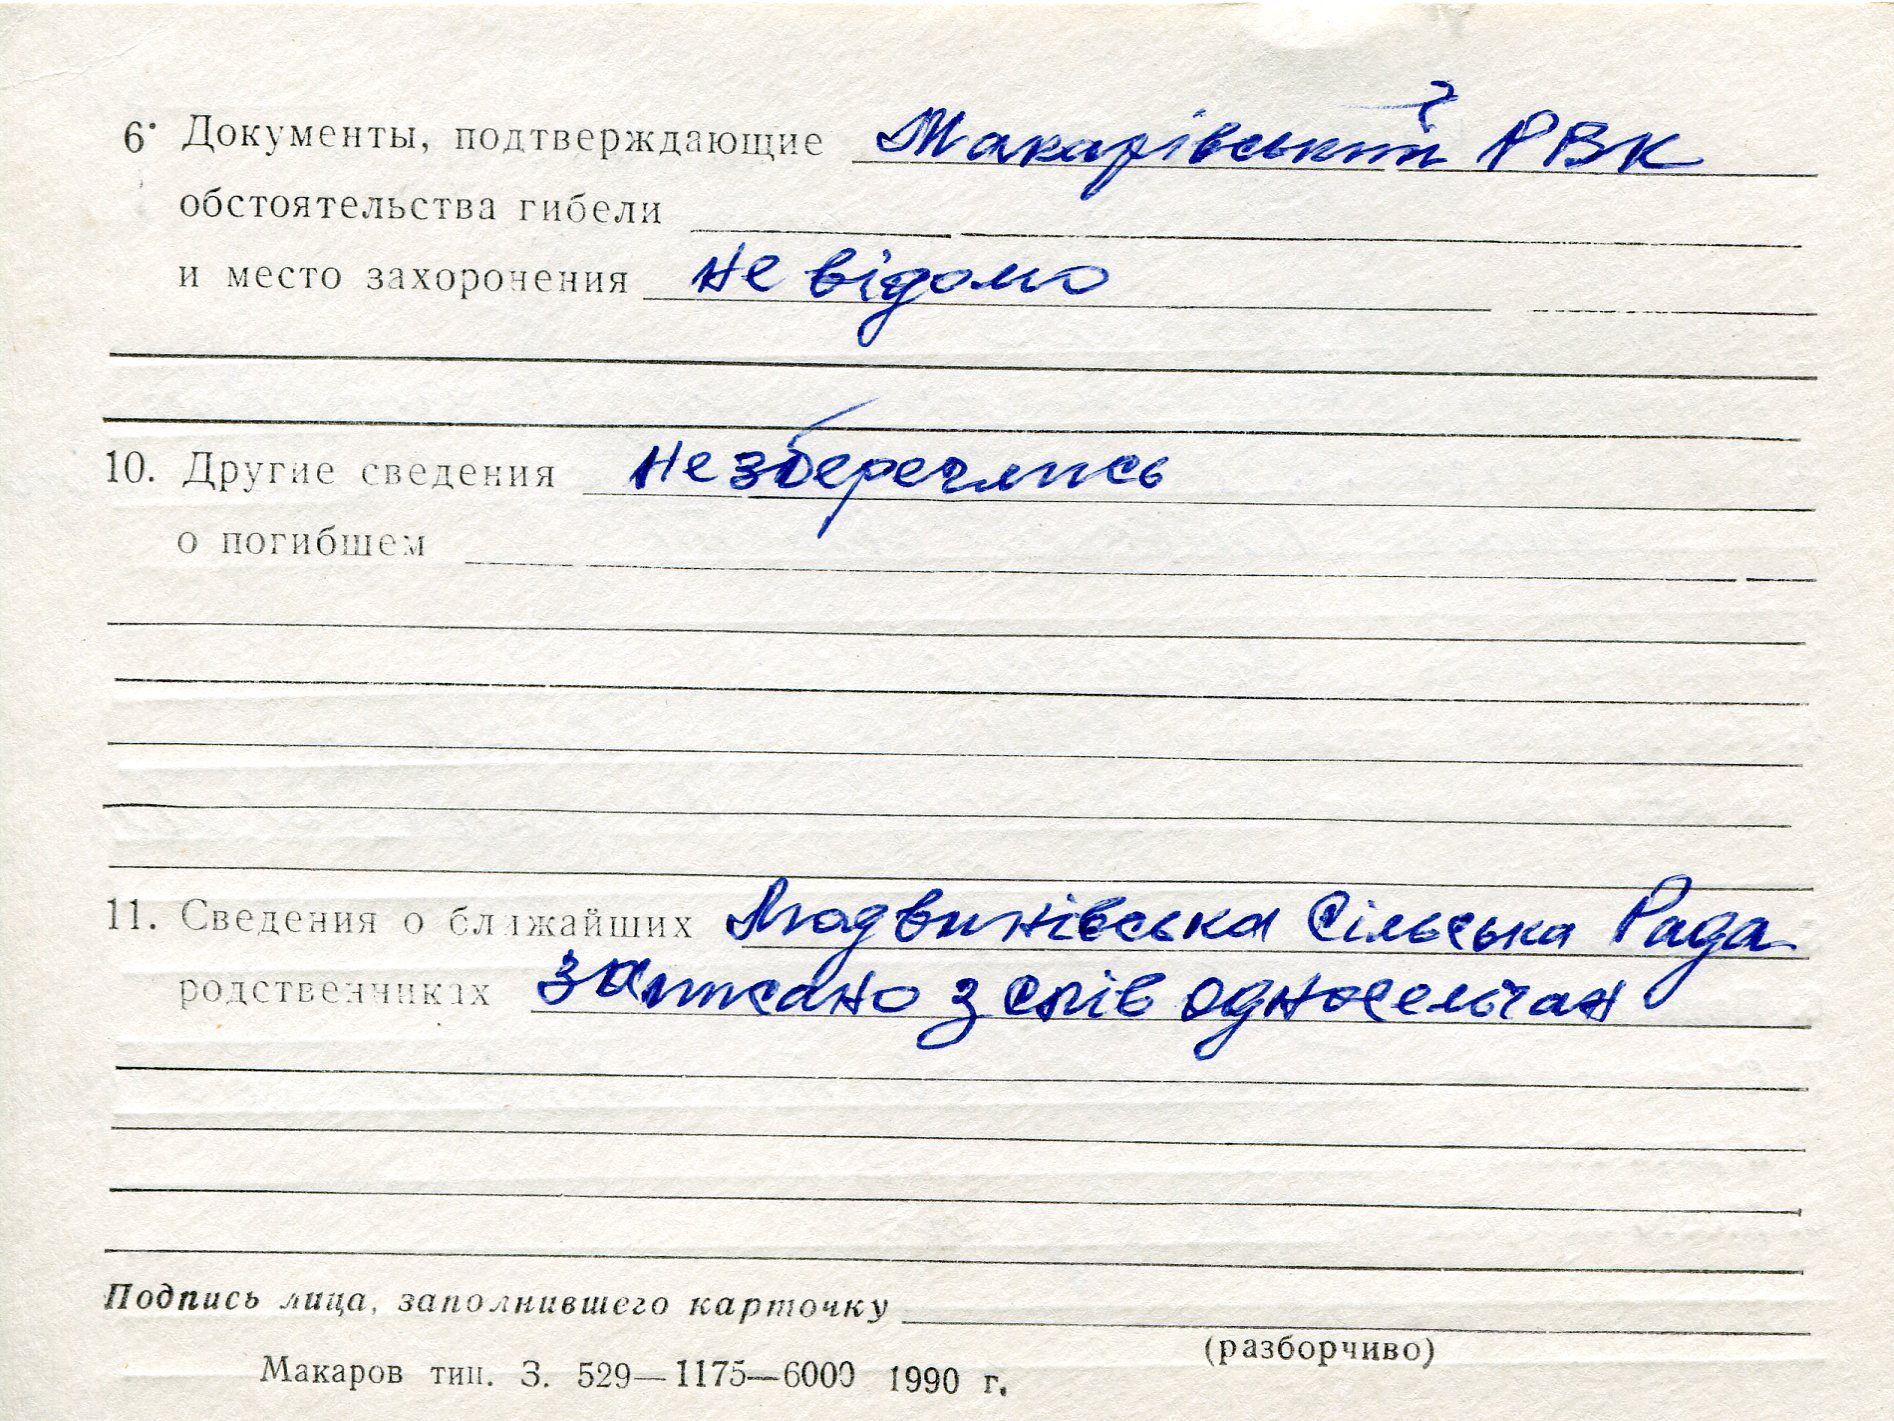 6. Документы, подтверждающие Макарівський РВК
обстоятельства гибели
и место захоронения не відомо
10. Другие сведения не збереглись
о погибшем
11. Сведения о ближайших Людвинівська Сільська Рада
родственчиках записано з слів односельчан
Подпись лица, заполнившего карточку
(разборчиво)
Макаров тип. З. 529—1175—6000 1990 г.